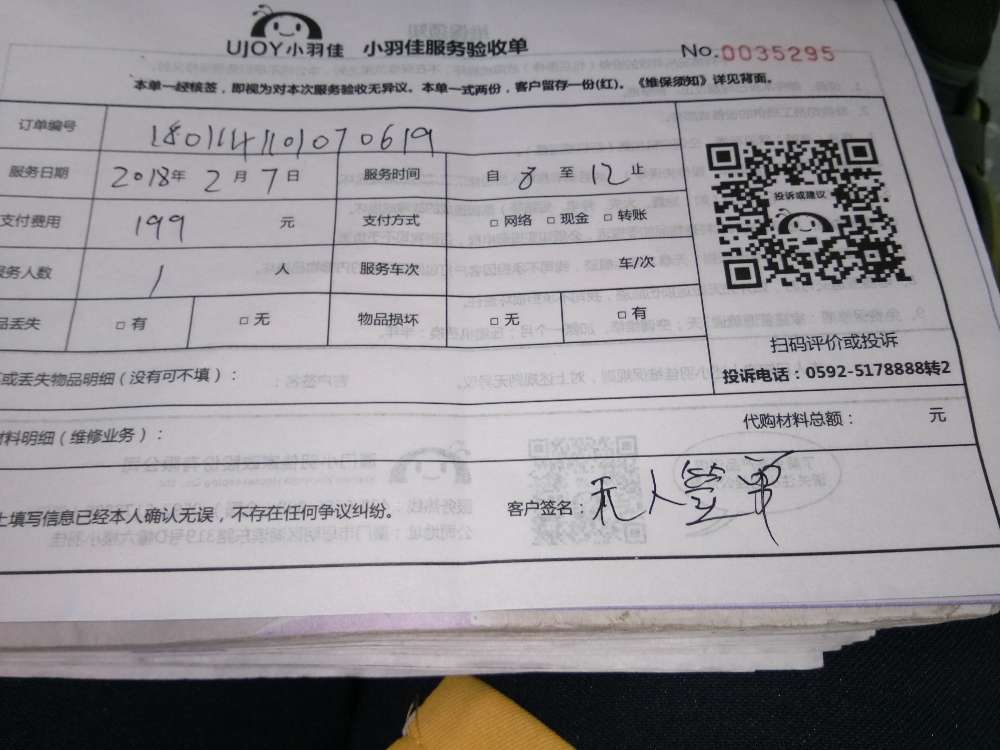 UJOY小羽佳 小羽佳服务验收单 No.0035295
本单一经核签，即视为对本次服务验收无异议。本单一式两份，客户留存一份(红)。《维保须知》详见背面。
订单编号 1801141101070619
服务日期 2018年 2月 7日 服务时间 自 8 至 12 止
支付费用 199 元 支付方式 □ 网络 □ 现金 □ 转账
服务人数 1 人 服务车次 车/次
品丢失 □ 有 □ 无 物品损坏 □ 无 □ 有
投诉或建议
扫码评价或投诉
投诉电话：0592-5178888转2
或丢失物品明细（没有可不填）：
材料明细（维修业务）： 代购材料总额： 元
上填写信息已经本人确认无误，不存在任何争议纠纷。 客户签名：无人签单